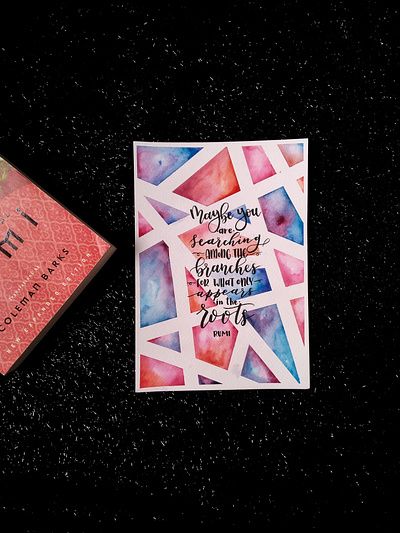 Maybe you
are
searching
AMONG THE
branches
FOR WHAT ONLY
appears
in the
roots
RUMI
MI
COLEMAN BARKS